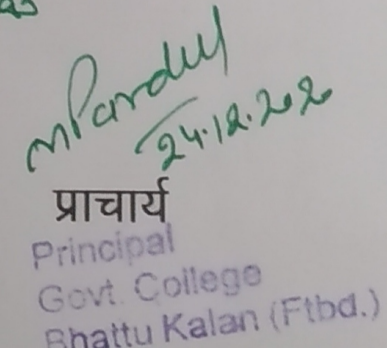 24.12.2020
प्राचार्य
Principal
Govt. College
Bhattu Kalan (Ftbd.)